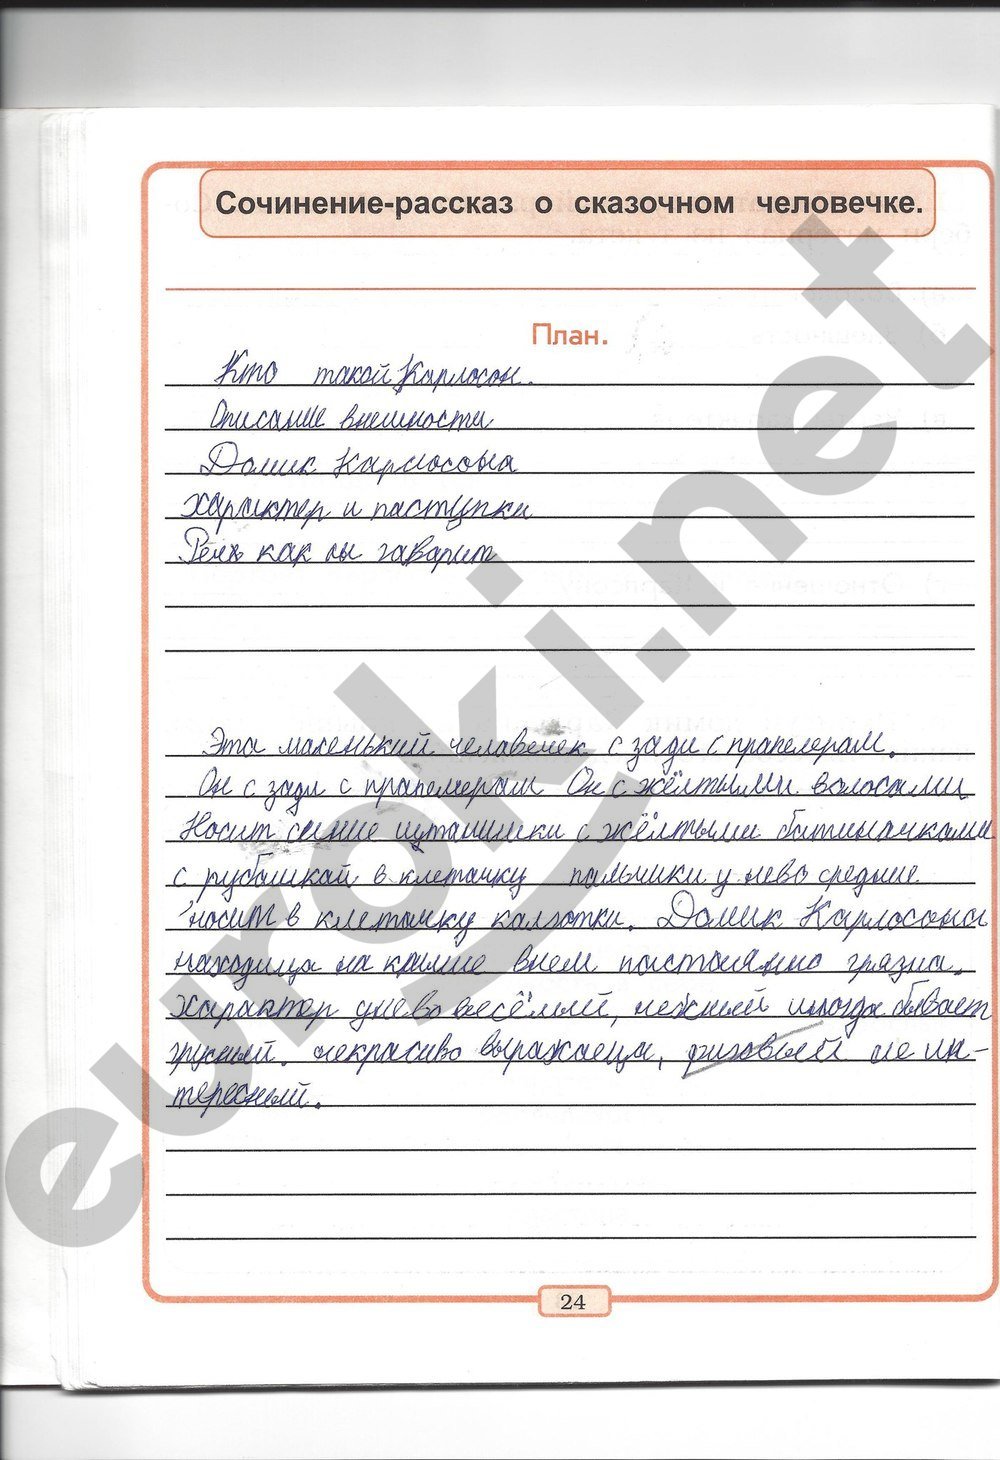 Сочинение-рассказ о сказочном человечке.
План.
Кто такой Карлосон.
Описание внешности
Домик Карлосона
характер и паступки
Речь как он гаварит
Эта маленький челавечек с зади с прапелерам.
Он с зади с прапелерам Он с жёлтыми волосами
Носит синие штанишки с жёлтыми батиначками
с рубашкай в клетачку пальчики у нево средние
носит в клетачку калготки. Домик Карлосона
находица на крыше внем пастаянно грязна.
характер у нево весёлый, нежный иногда бывает
грусный. некрасиво выражаеца, не ин-
тересный.
24
euroki.net